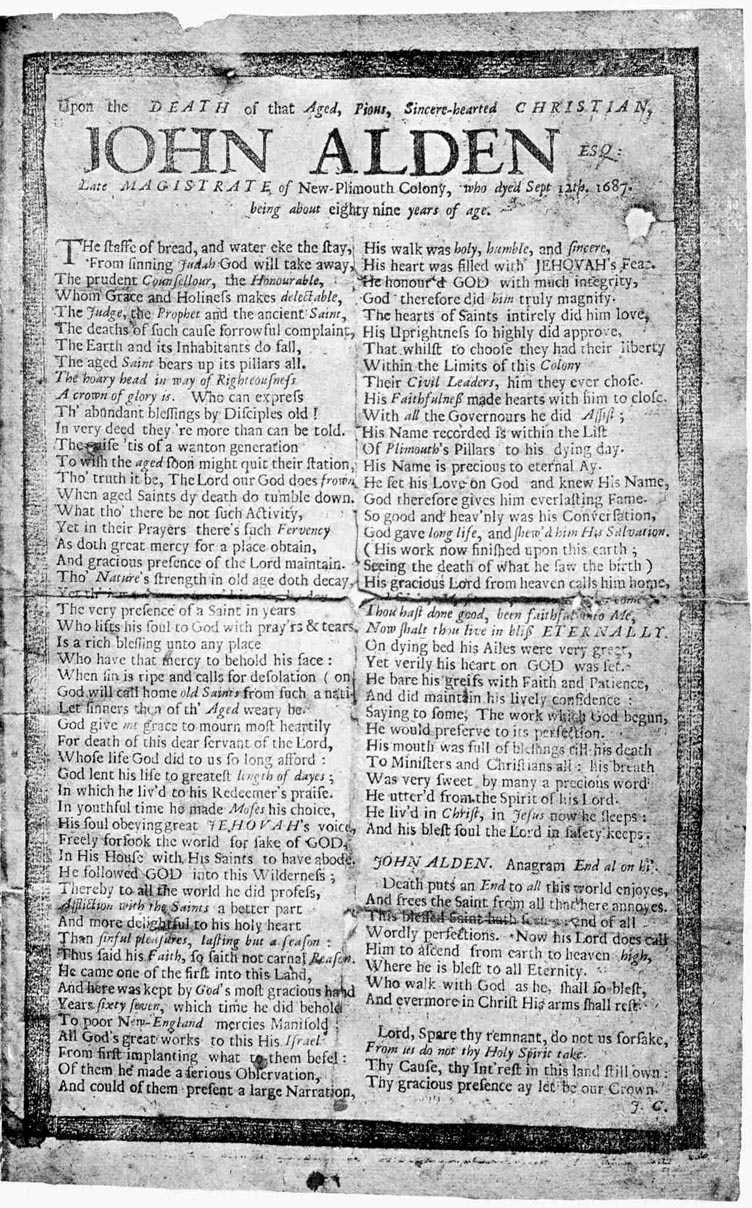 Upon the DEATH of that Aged, Pious, Sincere-hearted CHRISTIAN,
JOHN ALDEN ESQ:
Late MAGISTRATE of New-Plimouth Colony, who dyed Sept 12th. 1687.
being about eighty nine years of age.
THe ſtaffe of bread, and water eke the ſtay,
From ſinning Judah God will take away,
The prudent Counſellour, the Honourable,
Whom Grace and Holineſs makes delectable,
The Judge, the Prophet and the ancient Saint,
The deaths of ſuch cauſe ſorrowful complaint,
The Earth and its Inhabitants do fall,
The aged Saint bears up its pillars all.
The hoary head in way of Righteouſneſs
A crown of glory is. Who can expreſs
Th' abundant bleſſings by Diſciples old !
In very deed they 're more than can be told.
The guiſe 'tis of a wanton generation
To wiſh the aged ſoon might quit their ſtation,
Tho' truth it be, The Lord our God does frown
When aged Saints by death do tumble down.
What tho' there be not ſuch Activity,
Yet in their Prayers there's ſuch Fervency
As doth great mercy for a place obtain,
And gracious preſence of the Lord maintain.
Tho' Nature's ſtrength in old age doth decay,
Yet
The very preſence of a Saint in years
Who lifts his ſoul to God with pray'rs & tears,
Is a rich bleſſing unto any place
Who have that mercy to behold his face :
When ſin is ripe and calls for deſolation ( on
God will call home old Saints from ſuch a nati-
Let ſinners then of th' Aged weary be.
God give me grace to mourn moſt heartily
For death of this dear ſervant of the Lord,
Whoſe life God did to us ſo long afford :
God lent his life to greateſt length of dayes ;
In which he liv'd to his Redeemer's praiſe.
In youthful time he made Moſes his choice,
His ſoul obeying great JEHOVAH's voice,
Freely forſook the world for ſake of GOD,
In His Houſe with His Saints to have abode.
He followed GOD into this Wilderneſs ;
Thereby to all the world he did profeſs,
Affliction with the Saints a better part
And more delightful to his holy heart
Than ſinful pleaſures, laſting but a ſeaſon :
Thus ſaid his Faith, ſo ſaith not carnal Reaſon.
He came one of the firſt into this Land,
And here was kept by God's moſt gracious hand
Years ſixty ſeven, which time he did behold
To poor New-England mercies Manifold :
All God's great works to this His Iſrael
From firſt implanting what to them befel :
Of them he made a ſerious Obſervation,
And could of them preſent a large Narration,
His walk was holy, humble, and ſincere,
His heart was filled with JEHOVAH's Fear.
He honour'd GOD with much integrity,
God therefore did him truly magnify.
The hearts of Saints intirely did him love,
His Uprightneſs ſo highly did approve,
That whilſt to chooſe they had their liberty
Within the Limits of this Colony
Their Civil Leaders, him they ever choſe.
His Faithfulneſs made hearts with him to cloſe.
With all the Governours he did Aſſiſt ;
His Name recorded is within the Liſt
Of Plimouth's Pillars to his dying day.
His Name is precious to eternal Ay.
He ſet his Love on God and knew His Name,
God therefore gives him everlaſting Fame.
So good and heav'nly was his Converſation,
God gave long life, and ſhew'd him His Salvation.
( His work now finiſhed upon this earth ;
Seeing the death of what he ſaw the birth )
His gracious Lord from heaven calls him home,
Thou haſt done good, been faithful unto Me,
Now ſhalt thou live in bliſs ETERNALLY.
On dying bed his Ailes were very great,
Yet verily his heart on GOD was ſet.
He bare his greifs with Faith and Patience,
And did maintain his lively confidence :
Saying to ſome, The work which God begun,
He would preſerve to its perfection.
His mouth was full of bleſſings till his death
To Miniſters and Chriſtians all : his breath
Was very ſweet by many a precious word
He utter'd from the Spirit of his Lord.
He liv'd in Chriſt, in Jeſus now he ſleeps :
And his bleſt ſoul the Lord in ſafety keeps.
JOHN ALDEN. Anagram End al on hi'.
Death puts an End to all this world enjoyes,
And frees the Saint from all that here annoyes.
This bleſſed Saint hath end of all
Wordly perfections. Now his Lord does call
Him to aſcend from earth to heaven high,
Where he is bleſt to all Eternity.
Who walk with God as he, ſhall ſo bleſt,
And evermore in Chriſt His arms ſhall reſt.
Lord, Spare thy remnant, do not us forſake,
From us do not thy Holy Spirit take.
Thy Cauſe, thy Int'reſt in this land ſtill own :
Thy gracious preſence ay let be our Crown.
J. C.